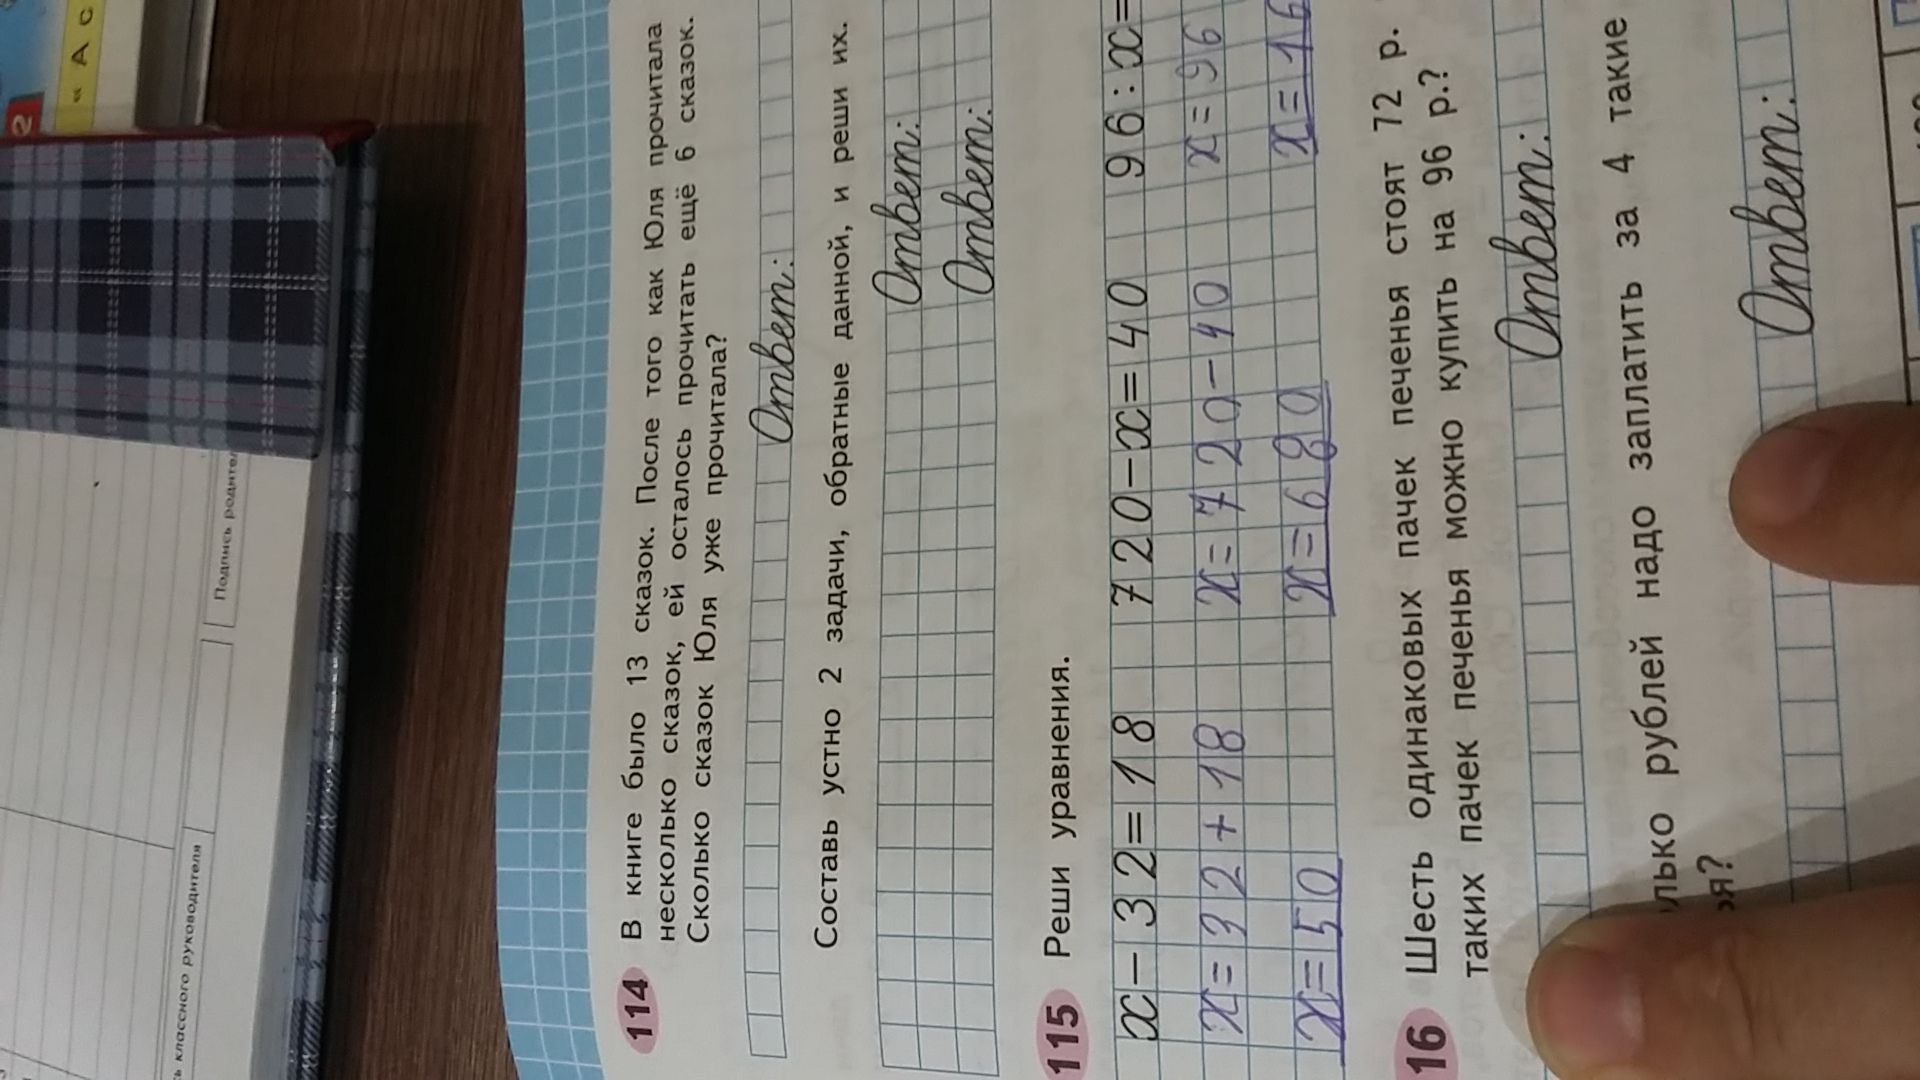 2
« А С
Подпись родител
ь классного руководителя
114 В книге было 13 сказок. После того как Юля прочитала
несколько сказок, ей осталось прочитать ещё 6 сказок.
Сколько сказок Юля уже прочитала?
Ответ:
Составь устно 2 задачи, обратные данной, и реши их.
Ответ:
Ответ:
115 Реши уравнения.
x-32=18 720-x=40 96:x=
x=32+18 x=720-40 x=96
x=50 x=680 x=16
16 Шесть одинаковых пачек печенья стоят 72 р.
таких пачек печенья можно купить на 96 р.?
Ответ:
лько рублей надо заплатить за 4 такие
я?
Ответ: